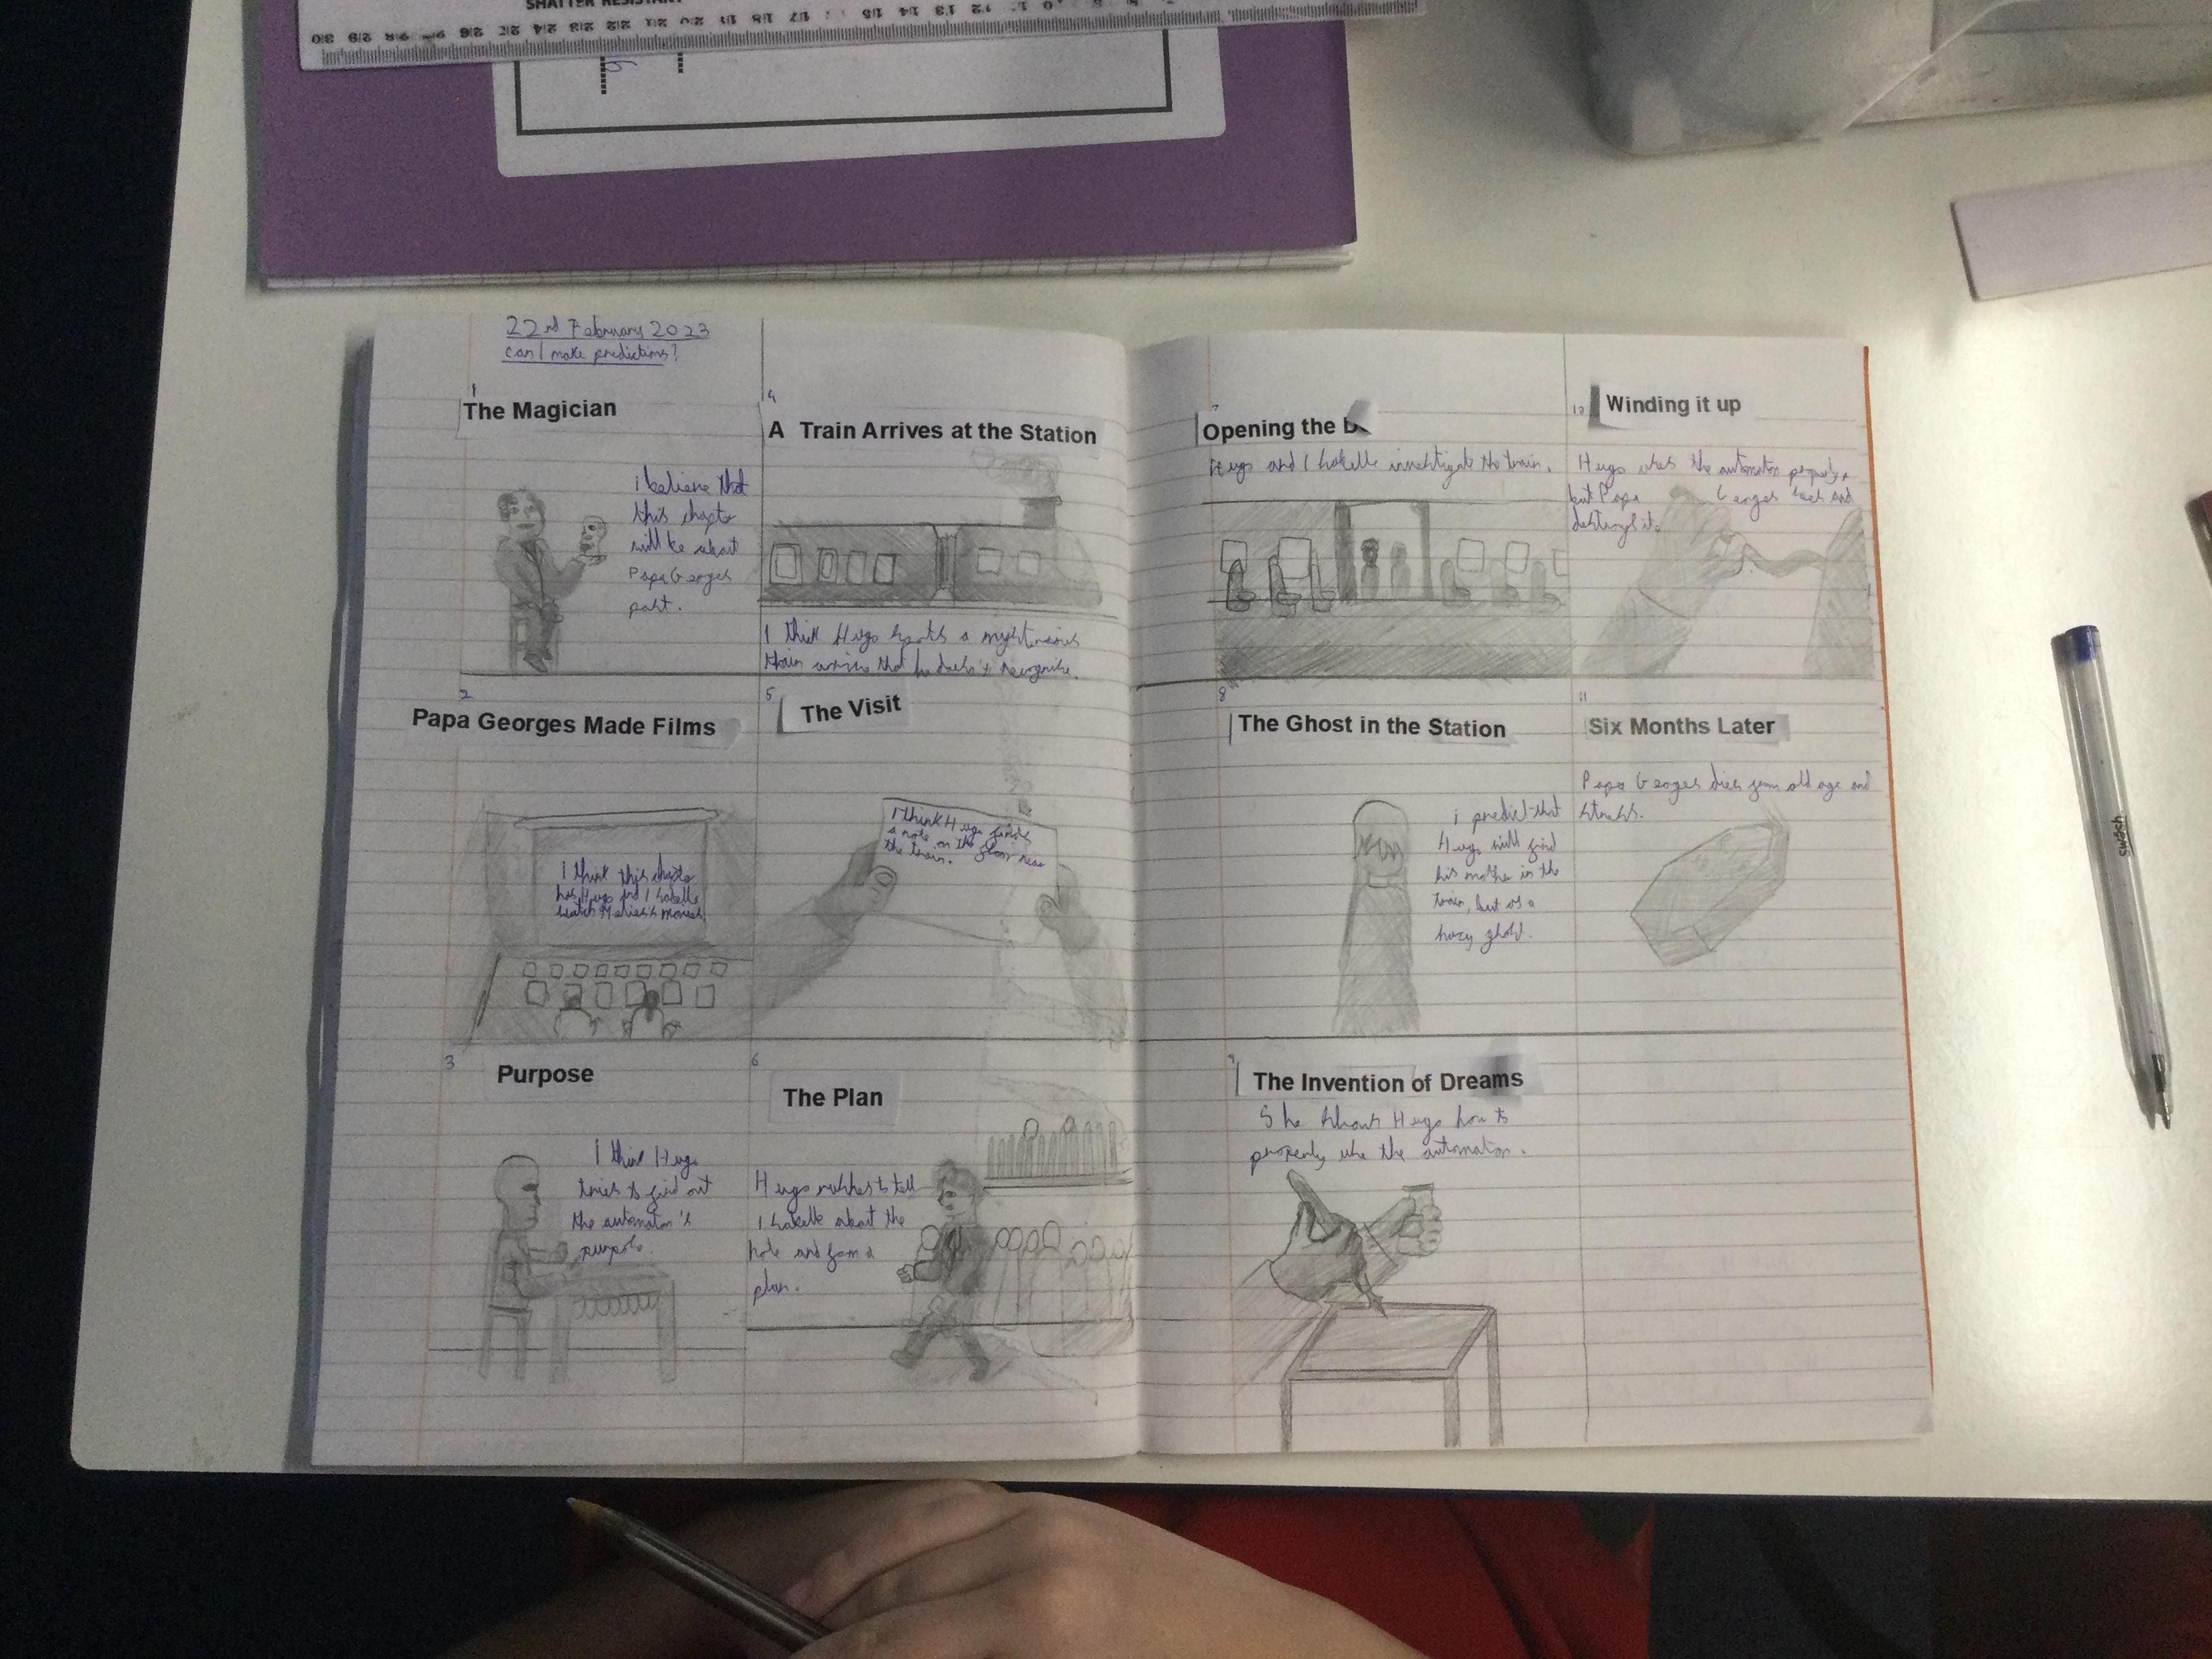 SHATTER RESISTANT
30 29 28 27 26 25 24 23 22 21 20 19 18 17 16 15 14 13 12 11 10
22nd February 2023
can I make predictions?
1
The Magician
i believe that
this chapter
will be about
Papa Georges
past.
2
Papa Georges Made Films
I think this chapter
has Hugo and Isabelle
watch Melies's movies.
3
Purpose
I think Hugo
tries to find out
the automaton's
purpose.
4
A Train Arrives at the Station
I think Hugo spots a mysterious
train arrive that he doesn't recognise.
5
The Visit
I think Hugo finds
a note on the floor near
the train.
6
The Plan
Hugo rushes to tell
Isabelle about the
note and form a
plan.
7
Opening the
Hugo and Isabelle investigate the train.
8
The Ghost in the Station
i predict that
Hugo will find
his mother in the
train, but as a
hazy ghost.
9
The Invention of Dreams
She shows Hugo how to
properly use the automaton.
10
Winding it up
Hugo uses the automaton properly,
but Papa Georges sees and
destroys it.
11
Six Months Later
Papa Georges dies from old age and
stress.
swash